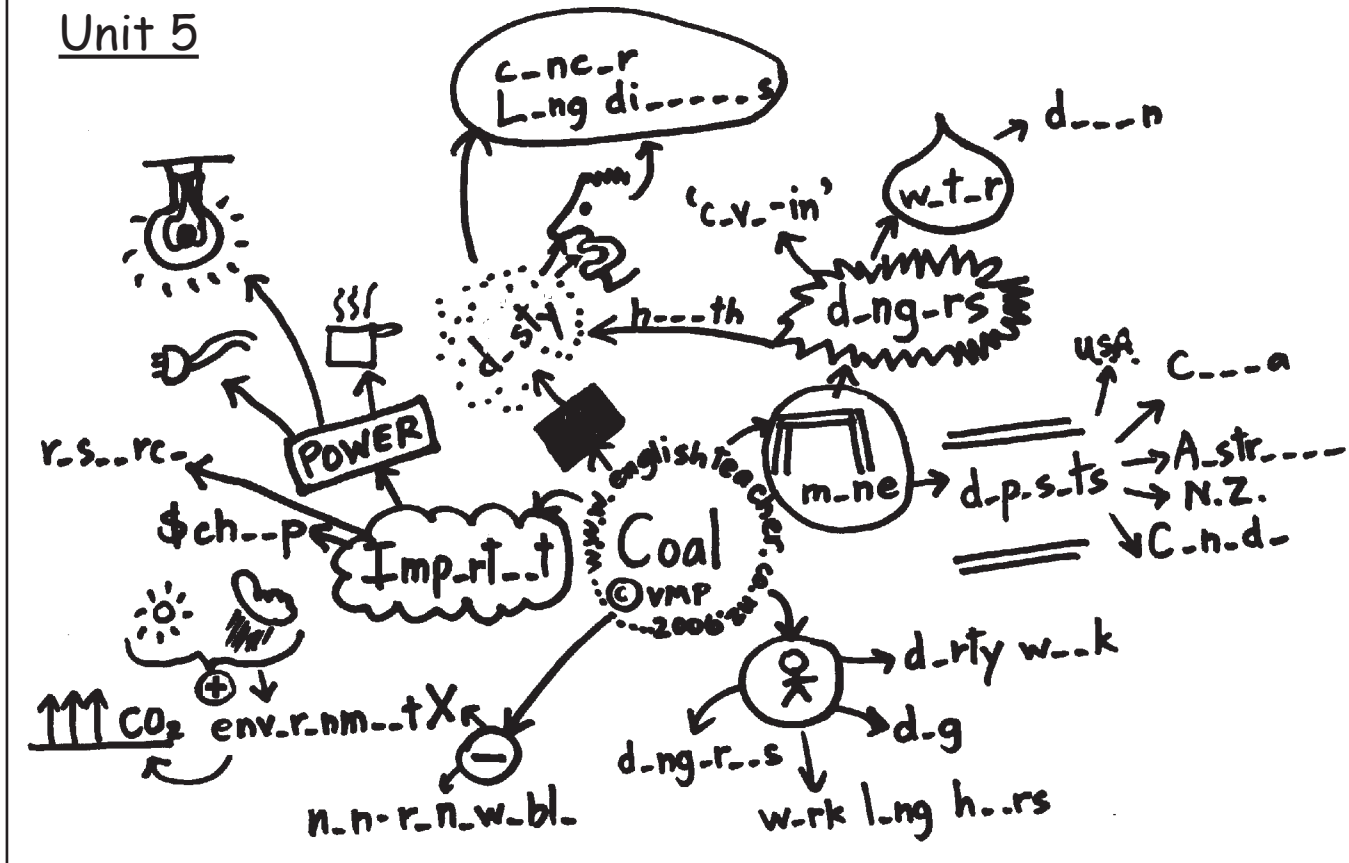 Unit 5
c_nc_r
L_ng di_____s
d___n
w_t_r
'c_v_-in'
d_ng_rs
h___th
d_st
USA.
C___a
A_str____
N.Z.
C_n_d_
d_p_s_ts
m_ne
POWER
r_s__rc_
$ch__p
Imp_rt__t
www.englishteacher.co.nz
Coal
© VMP
2006
d_rty w__k
d_g
w_rk l_ng h__rs
d_ng_r__s
+
CO2 env_r_nm__t X
−
n_n-r_n_w_bl_